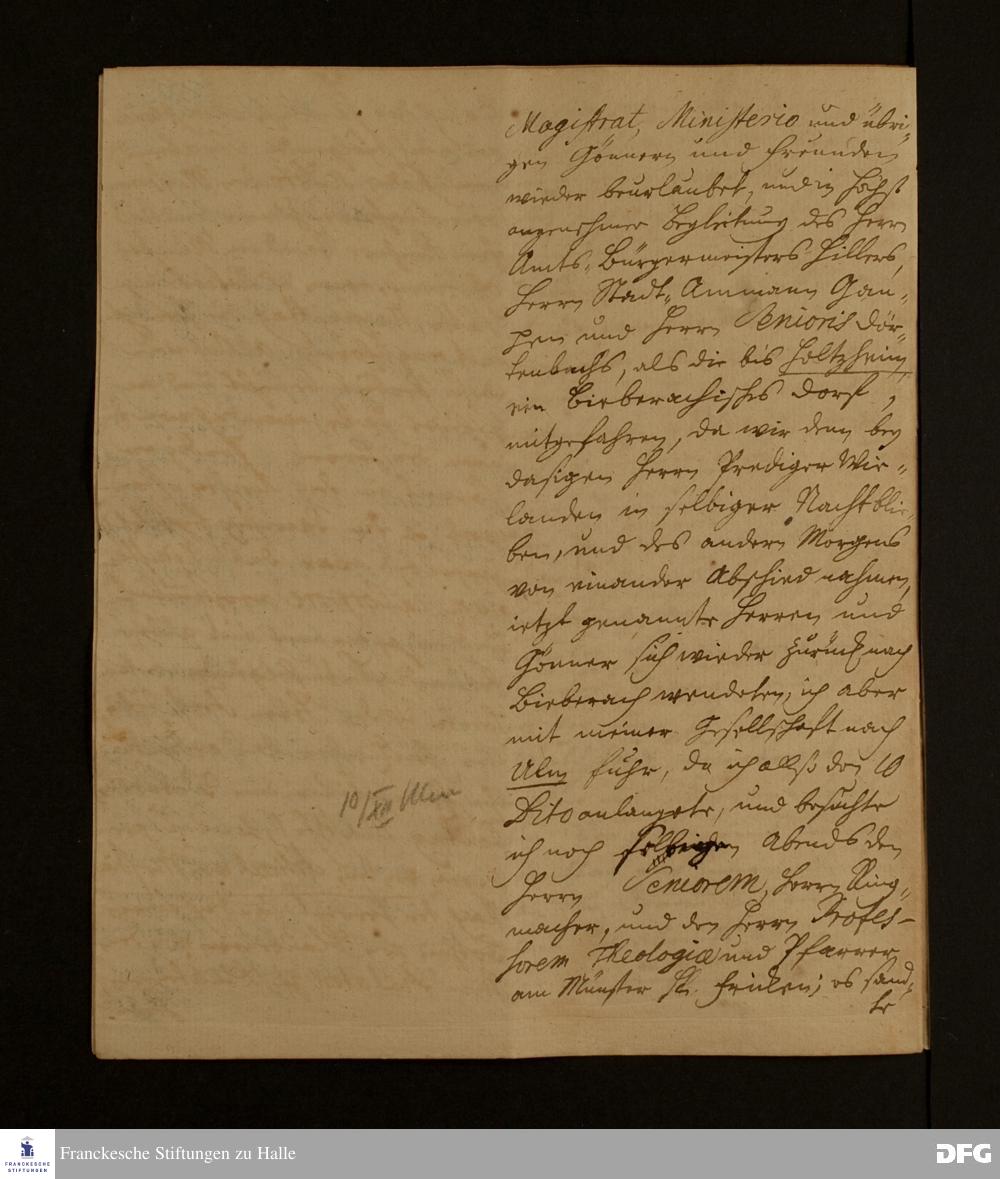 Magistrat, Ministerio und übri-
gen Gönnern und Freunden
wieder beurlaubet, und in höchst
angenehmer Begleitung des Herrn
Amts-Bürgermeisters Hillers,
Herrn Stadt-Ammann Gau-
pen und Herrn Senioris Dör-
tenbachs, als die bis Holtzheim
ein Bieberachisches Dorf,
mitgefahren, da wir denn bey
dasigen Herrn Prediger Wie-
landen in selbiger Nacht blie-
ben, und des andern Morgens
von einander Abschied nahmen,
ietzt genannte Herren und
Gönner sich wieder zurück nach
Bieberach wendeten, ich aber
mit meiner Gesellschaft nach
Ulm fuhr, da ich den 10
Dito anlangete, und besuchte
ich noch selbigen Abends den
Herrn Seniorem, Herrn Ring-
macher, und den Herrn Profes-
sorem Theologiæ und Pfarrer
am Münster H. Fricken; es sand-
te
10/XII Ulm
Franckesche Stiftungen zu Halle
FRANCKESCHE
STIFTUNGEN
DFG